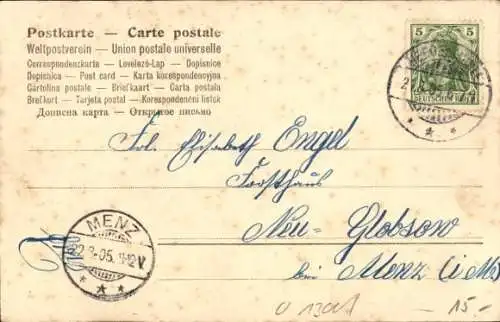 Postkarte – Carte postale
Weltpostverein – Union postale universelle
Correspondenzkarte – Levelező-Lap – Dopisnice
Dopisnica – Post card – Karta korespondencyjna
Cartolina postale – Briefkaart – Carta postala
Brefkort – Tarjeta postal – Korespondenčni listek
Дописна карта – Открытое письмо
5 5
DEUTSCHES REICH
Frl. Elisabeth Engel
Forsthaus
Neu-Globsow
bei Menz (i/M)
MENZ
22.3.05. 11-12V
15.-